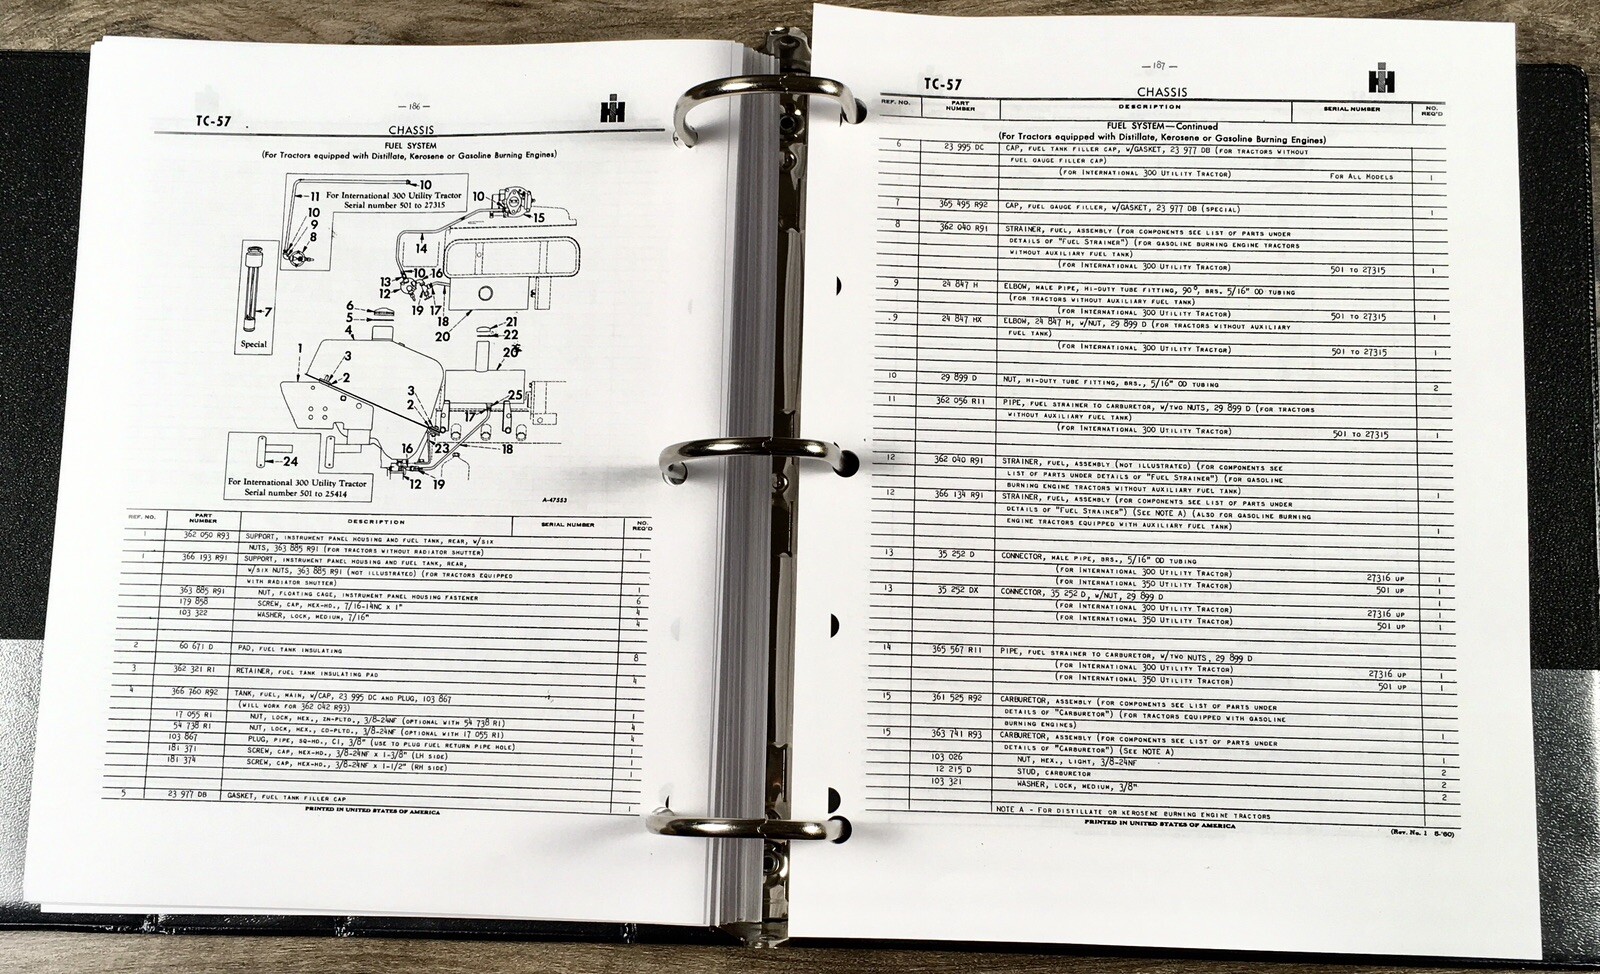 — 186 —
TC-57
IH
CHASSIS
FUEL SYSTEM
(For Tractors equipped with Distillate, Kerosene or Gasoline Burning Engines)
10
11
For International 300 Utility Tractor
Serial number 501 to 27315
10
9
8
7
Special
10
15
14
13
10
16
12
19
17
18
20
6
5
4
21
22
20
1
3
2
3
2
25
17
16
23
18
12
19
24
For International 300 Utility Tractor
Serial number 501 to 25414
A-47553
REF. NO. PART NUMBER DESCRIPTION SERIAL NUMBER NO. REQ'D
1 362 050 R93 SUPPORT, INSTRUMENT PANEL HOUSING AND FUEL TANK, REAR, W/SIX
NUTS, 363 885 R91 (FOR TRACTORS WITHOUT RADIATOR SHUTTER) 1
1 366 193 R91 SUPPORT, INSTRUMENT PANEL HOUSING AND FUEL TANK, REAR,
W/SIX NUTS, 363 885 R91 (NOT ILLUSTRATED) (FOR TRACTORS EQUIPPED
WITH RADIATOR SHUTTER) 1
363 885 R91 NUT, FLOATING CAGE, INSTRUMENT PANEL HOUSING FASTENER 6
179 858 SCREW, CAP, HEX-HD., 7/16-14NC X 1" 4
103 322 WASHER, LOCK, MEDIUM, 7/16" 4
2 60 671 D PAD, FUEL TANK INSULATING 8
3 362 321 R1 RETAINER, FUEL TANK INSULATING PAD 4
4 366 760 R92 TANK, FUEL, MAIN, W/CAP, 23 995 DC AND PLUG, 103 867
(WILL WORK FOR 362 042 R93) 1
17 055 R1 NUT, LOCK, HEX., ZN-PLTD., 3/8-24NF (OPTIONAL WITH 54 738 R1) 4
54 738 R1 NUT, LOCK, HEX., CD-PLTD., 3/8-24NF (OPTIONAL WITH 17 055 R1) 4
103 867 PLUG, PIPE, SQ-HD., CI, 3/8" (USE TO PLUG FUEL RETURN PIPE HOLE) 1
181 371 SCREW, CAP, HEX-HD., 3/8-24NF X 1-3/8" (LH SIDE) 1
181 374 SCREW, CAP, HEX-HD., 3/8-24NF X 1-1/2" (RH SIDE) 1
5 23 977 DB GASKET, FUEL TANK FILLER CAP 1
PRINTED IN UNITED STATES OF AMERICA
— 187 —
TC-57
IH
CHASSIS
REF. NO. PART NUMBER DESCRIPTION SERIAL NUMBER NO. REQ'D
FUEL SYSTEM—Continued
(For Tractors equipped with Distillate, Kerosene or Gasoline Burning Engines)
6 23 995 DC CAP, FUEL TANK FILLER CAP, W/GASKET, 23 977 DB (FOR TRACTORS WITHOUT
FUEL GAUGE FILLER CAP)
(FOR INTERNATIONAL 300 UTILITY TRACTOR) FOR ALL MODELS 1
7 365 495 R92 CAP, FUEL GAUGE FILLER, W/GASKET, 23 977 DB (SPECIAL) 1
8 362 040 R91 STRAINER, FUEL, ASSEMBLY (FOR COMPONENTS SEE LIST OF PARTS UNDER
DETAILS OF "FUEL STRAINER") (FOR GASOLINE BURNING ENGINE TRACTORS
WITHOUT AUXILIARY FUEL TANK)
(FOR INTERNATIONAL 300 UTILITY TRACTOR) 501 TO 27315 1
9 24 847 H ELBOW, MALE PIPE, HI-DUTY TUBE FITTING, 90°, BRS. 5/16" OD TUBING
(FOR TRACTORS WITHOUT AUXILIARY FUEL TANK)
(FOR INTERNATIONAL 300 UTILITY TRACTOR) 501 TO 27315 1
9 24 847 HX ELBOW, 24 847 H, W/NUT, 29 899 D (FOR TRACTORS WITHOUT AUXILIARY
FUEL TANK)
(FOR INTERNATIONAL 300 UTILITY TRACTOR) 501 TO 27315 1
10 29 899 D NUT, HI-DUTY TUBE FITTING, BRS., 5/16" OD TUBING 2
11 362 056 R11 PIPE, FUEL STRAINER TO CARBURETOR, W/TWO NUTS, 29 899 D (FOR TRACTORS
WITHOUT AUXILIARY FUEL TANK)
(FOR INTERNATIONAL 300 UTILITY TRACTOR) 501 TO 27315 1
12 362 040 R91 STRAINER, FUEL, ASSEMBLY (NOT ILLUSTRATED) (FOR COMPONENTS SEE
LIST OF PARTS UNDER DETAILS OF "FUEL STRAINER") (FOR GASOLINE
BURNING ENGINE TRACTORS WITHOUT AUXILIARY FUEL TANK) 1
12 366 134 R91 STRAINER, FUEL, ASSEMBLY (FOR COMPONENTS SEE LIST OF PARTS UNDER
DETAILS OF "FUEL STRAINER") (SEE NOTE A) (ALSO FOR GASOLINE BURNING
ENGINE TRACTORS EQUIPPED WITH AUXILIARY FUEL TANK) 1
13 35 252 D CONNECTOR, MALE PIPE, BRS., 5/16" OD TUBING
(FOR INTERNATIONAL 300 UTILITY TRACTOR) 27316 UP 1
(FOR INTERNATIONAL 350 UTILITY TRACTOR) 501 UP 1
13 35 252 DX CONNECTOR, 35 252 D, W/NUT, 29 899 D
(FOR INTERNATIONAL 300 UTILITY TRACTOR) 27316 UP 1
(FOR INTERNATIONAL 350 UTILITY TRACTOR) 501 UP 1
14 365 567 R11 PIPE, FUEL STRAINER TO CARBURETOR, W/TWO NUTS, 29 899 D
(FOR INTERNATIONAL 300 UTILITY TRACTOR) 27316 UP 1
(FOR INTERNATIONAL 350 UTILITY TRACTOR) 501 UP 1
15 361 525 R92 CARBURETOR, ASSEMBLY (FOR COMPONENTS SEE LIST OF PARTS UNDER
DETAILS OF "CARBURETOR") (FOR TRACTORS EQUIPPED WITH GASOLINE
BURNING ENGINES) 1
15 363 741 R93 CARBURETOR, ASSEMBLY (FOR COMPONENTS SEE LIST OF PARTS UNDER
DETAILS OF "CARBURETOR") (SEE NOTE A) 1
103 026 NUT, HEX., LIGHT, 3/8-24NF 2
12 215 D STUD, CARBURETOR 2
103 321 WASHER, LOCK, MEDIUM, 3/8" 2
NOTE A - FOR DISTILLATE OR KEROSENE BURNING ENGINE TRACTORS
PRINTED IN UNITED STATES OF AMERICA
(Rev. No. 1 8-'60)